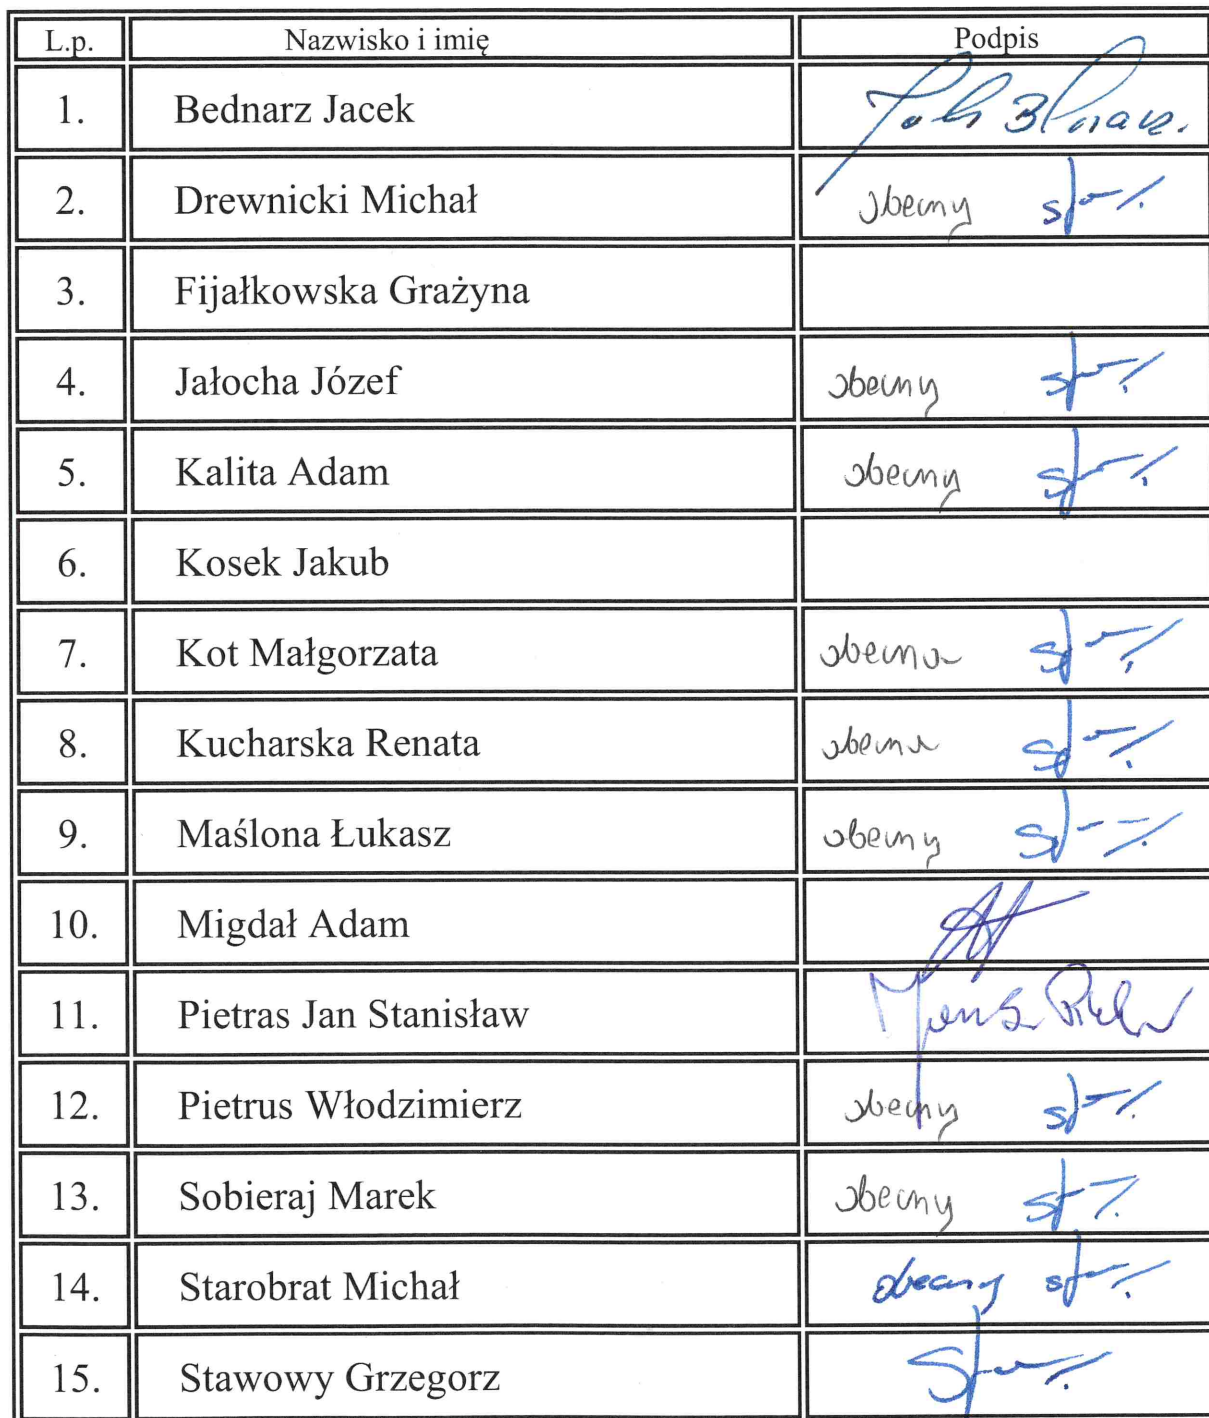 L.p. Nazwisko i imię Podpis
1. Bednarz Jacek
2. Drewnicki Michał obecny
3. Fijałkowska Grażyna
4. Jałocha Józef obecny
5. Kalita Adam obecny
6. Kosek Jakub
7. Kot Małgorzata obecna
8. Kucharska Renata obecna
9. Maślona Łukasz obecny
10. Migdał Adam
11. Pietras Jan Stanisław
12. Pietrus Włodzimierz obecny
13. Sobieraj Marek obecny
14. Starobrat Michał obecny
15. Stawowy Grzegorz